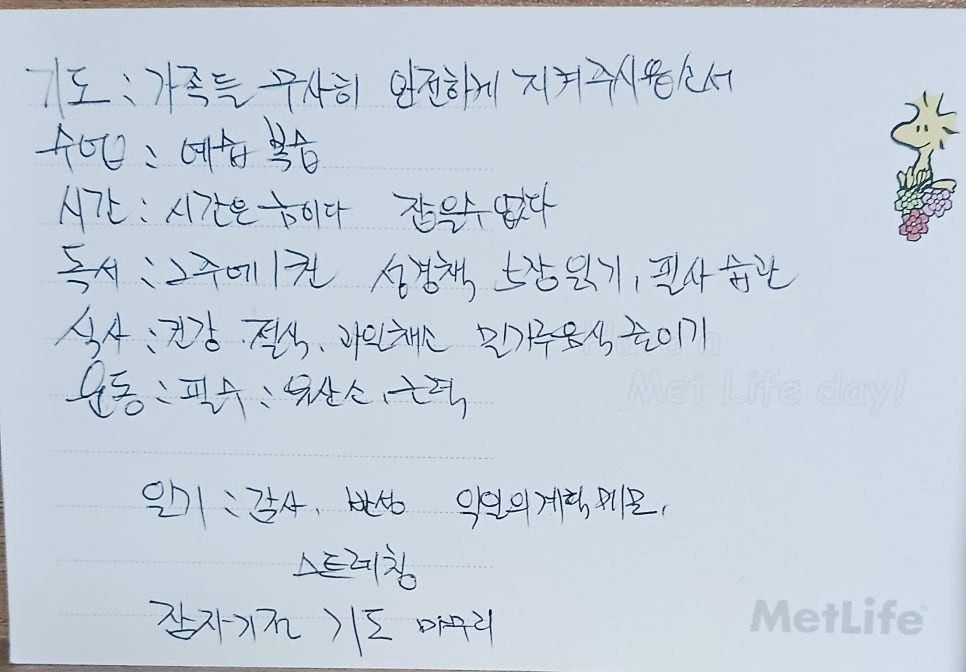 기도 : 가족들 무사히 안전하게 지켜주시옵소서
수업 : 예습 복습
시간 : 시간은 금이다 잡을수 없다
독서 : 2주에 1권 성경책 1장 읽기, 필사 습관
식사 : 건강. 절식. 과일채소 밀가루음식 줄이기
운동 : 필수 : 유산소, 근력
Met Life day!
일기 : 감사. 반성 익일의 계획 메모.
스트레칭
잠자기전 기도 마무리
MetLife